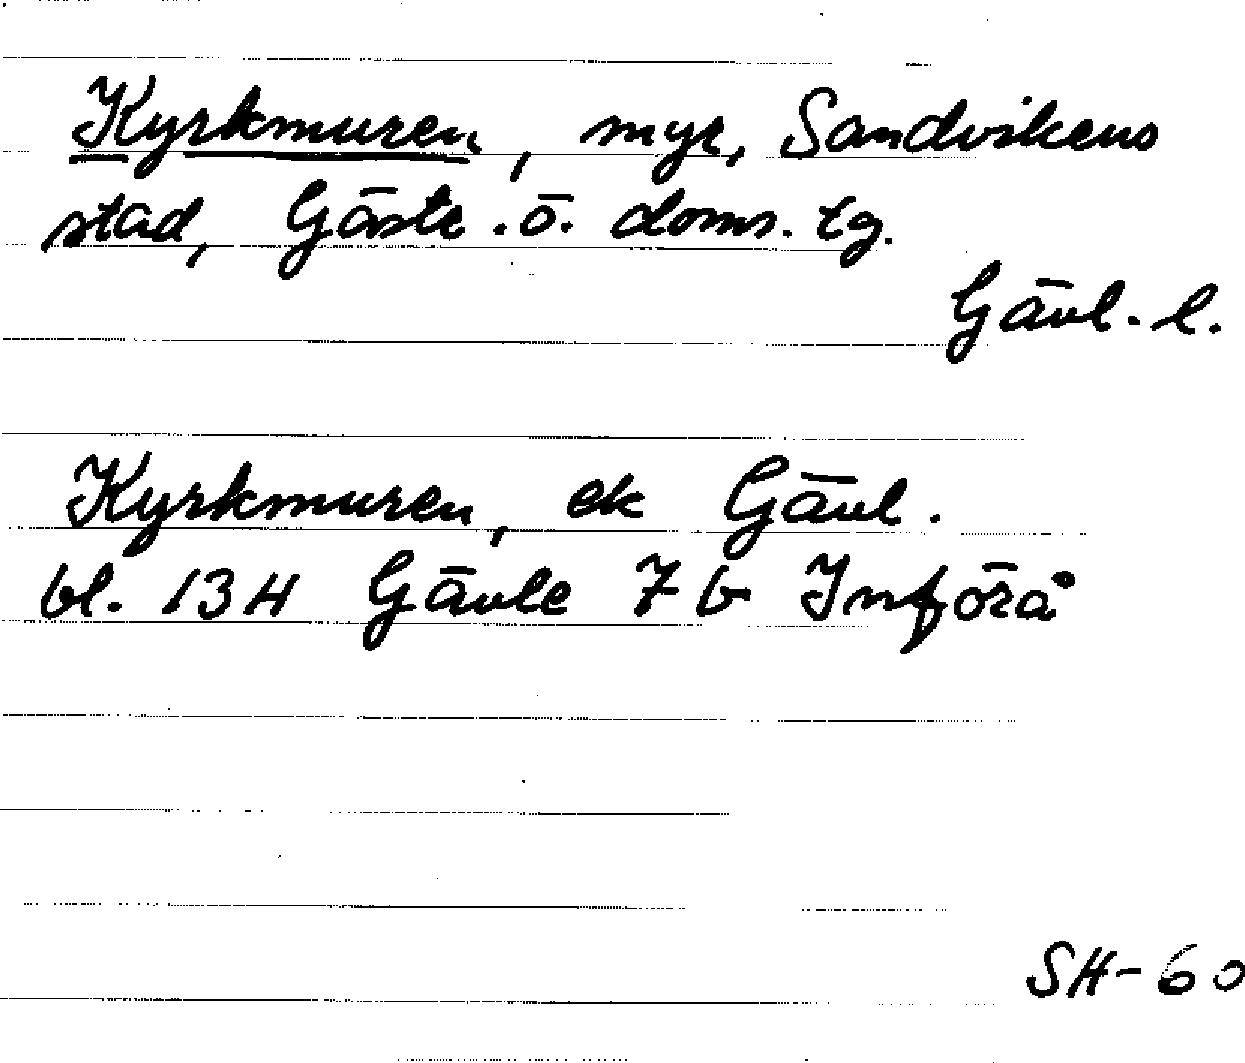 Kyrkmuren, myr, Sandvikens
stad, Gästr. ö. doms. tg.
Gävl. l.
Kyrkmuren, ek Gävl.
bl. 13H Gävle 7b Införå
SH-60